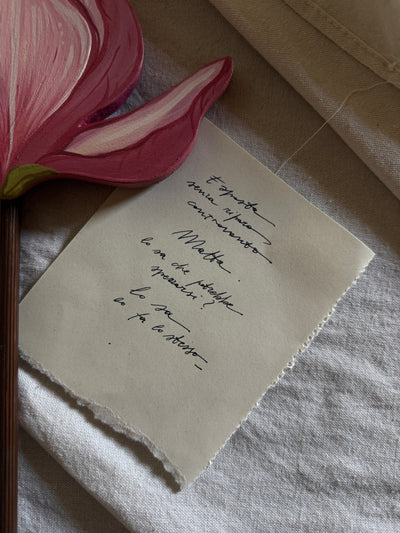 Esposta
senza riparo
controvento
Matta.
lo sa che potrebbe
spezzarsi?
Lo sa
e lo fa lo stesso